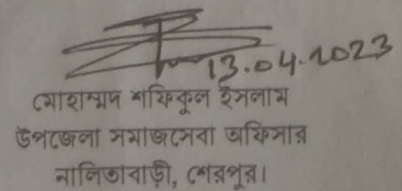 13.04.2023
মোহাম্মদ শফিকুল ইসলাম
উপজেলা সমাজসেবা অফিসার
নালিতাবাড়ী, শেরপুর।